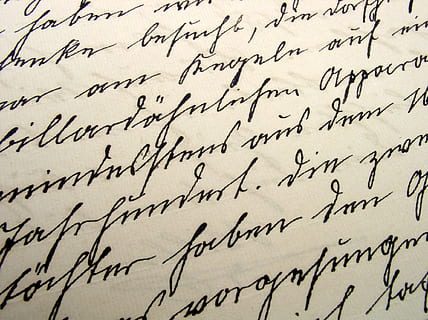 haben wi
enke besucht, die dorf
ar am Kegeln auf ei
billardähnlichen Appara
mindestens aus dem 16
Jahrhundert. Die zwe
töchter haben den G
vorgesungen
ich tat